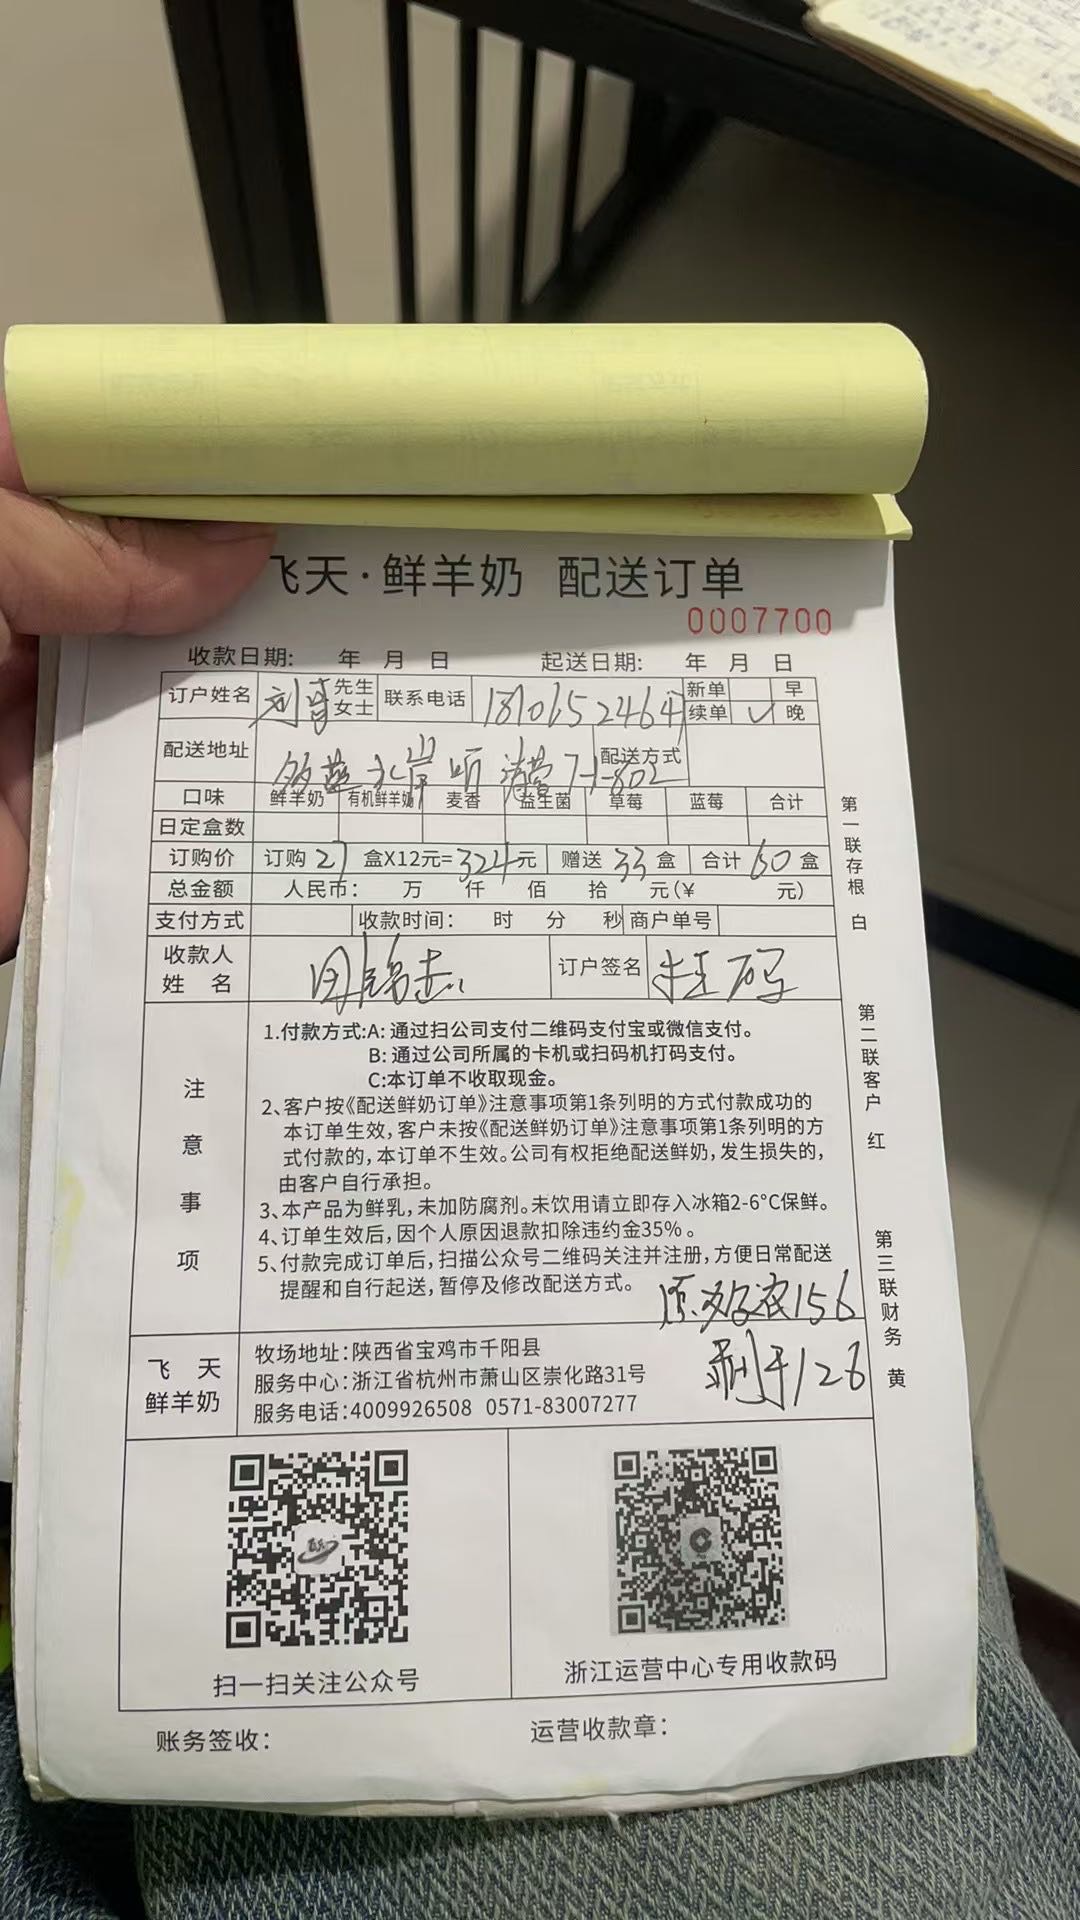 飞天·鲜羊奶 配送订单
0007700
收款日期: 年 月 日 起送日期: 年 月 日
订户姓名 刘 先生 女士 联系电话 1810652464 新单 早
续单 ✓ 晚
配送地址 北岸 7-1-802 配送方式
口味 鲜羊奶 有机鲜羊奶 麦香 益生菌 草莓 蓝莓 合计
日定盒数
订购价 订购 27 盒X12元=324元 赠送 33 盒 合计 60 盒
总金额 人民币: 万 仟 佰 拾 元(¥ 元)
支付方式 收款时间: 时 分 秒 商户单号
收款人 姓 名 订户签名 挂码
注意事项
1.付款方式:A: 通过扫公司支付二维码支付宝或微信支付。
B: 通过公司所属的卡机或扫码机打码支付。
C:本订单不收取现金。
2、客户按《配送鲜奶订单》注意事项第1条列明的方式付款成功的
本订单生效,客户未按《配送鲜奶订单》注意事项第1条列明的方
式付款的,本订单不生效。公司有权拒绝配送鲜奶,发生损失的,
由客户自行承担。
3、本产品为鲜乳,未加防腐剂。未饮用请立即存入冰箱2-6°C保鲜。
4、订单生效后,因个人原因退款扣除违约金35%。
5、付款完成订单后,扫描公众号二维码关注并注册,方便日常配送
提醒和自行起送,暂停及修改配送方式。
156
剩于126
飞天 鲜羊奶
牧场地址:陕西省宝鸡市千阳县
服务中心:浙江省杭州市萧山区崇化路31号
服务电话:4009926508 0571-83007277
扫一扫关注公众号
浙江运营中心专用收款码
账务签收:
运营收款章:
第一联存根 白
第二联客户 红
第三联财务 黄